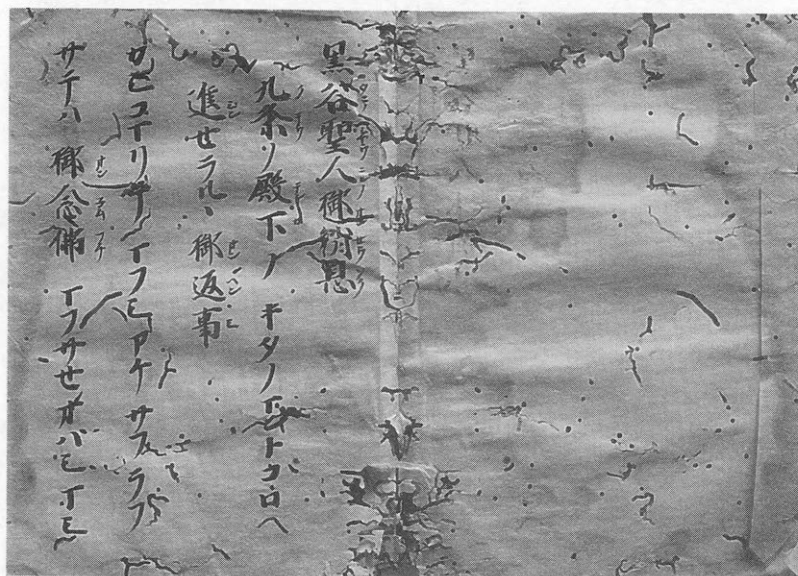 黒谷聖人御消息
九条ノ殿下ノ キタノマントコロヘ
進セラルヽ 御返事
カシコマリテ マフシアケ サフラフ
サテハ 御念佛 マフサセオハシマシ